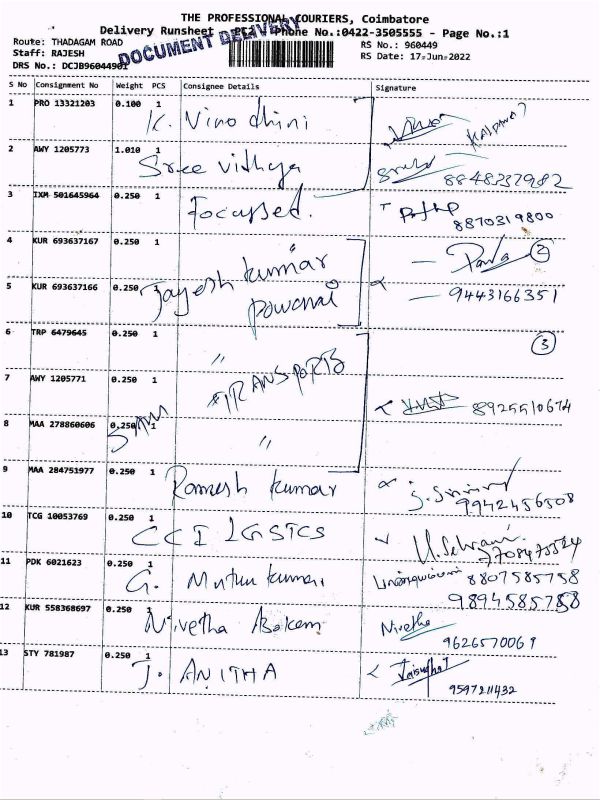 THE PROFESSIONAL COURIERS, Coimbatore
Delivery Runsheet - Phone No.:0422-3505555 - Page No.:1
DOCUMENT DELIVERY
Route: THADAGAM ROAD RS No.: 960449
Staff: RAJESH RS Date: 17-Jun-2022
DRS No.: DCJB96044901
S No Consignment No Weight PCS Consignee Details Signature
1 PRO 13321203 0.100 1 K. Vinodhini
2 AWY 1205773 1.010 1 Sree Vidhya 8848337982
3 IXM 501645964 0.250 1 Focussed. 8870319800
4 KUR 693637167 0.250 1 Jayesh kumar 2
5 KUR 693637166 0.250 9443166351
6 TRP 6479645 0.250 1 " 3
7 AWY 1205771 0.250 1 SAM TRANSPORTS 8925510674
8 MAA 278860606 0.250 1 "
9 MAA 284751977 0.250 1 Ramesh kumar 9942456508
10 TCG 10053769 0.250 1 CCI LGSTCS
11 PDK 6021623 0.250 1 G. Muthukumar 8807585758
9894585758
12 KUR 558368697 0.250 1 Nivetha Nivetha
9626570069
13 STY 781987 0.250 1 J. ANITHA
9597211432